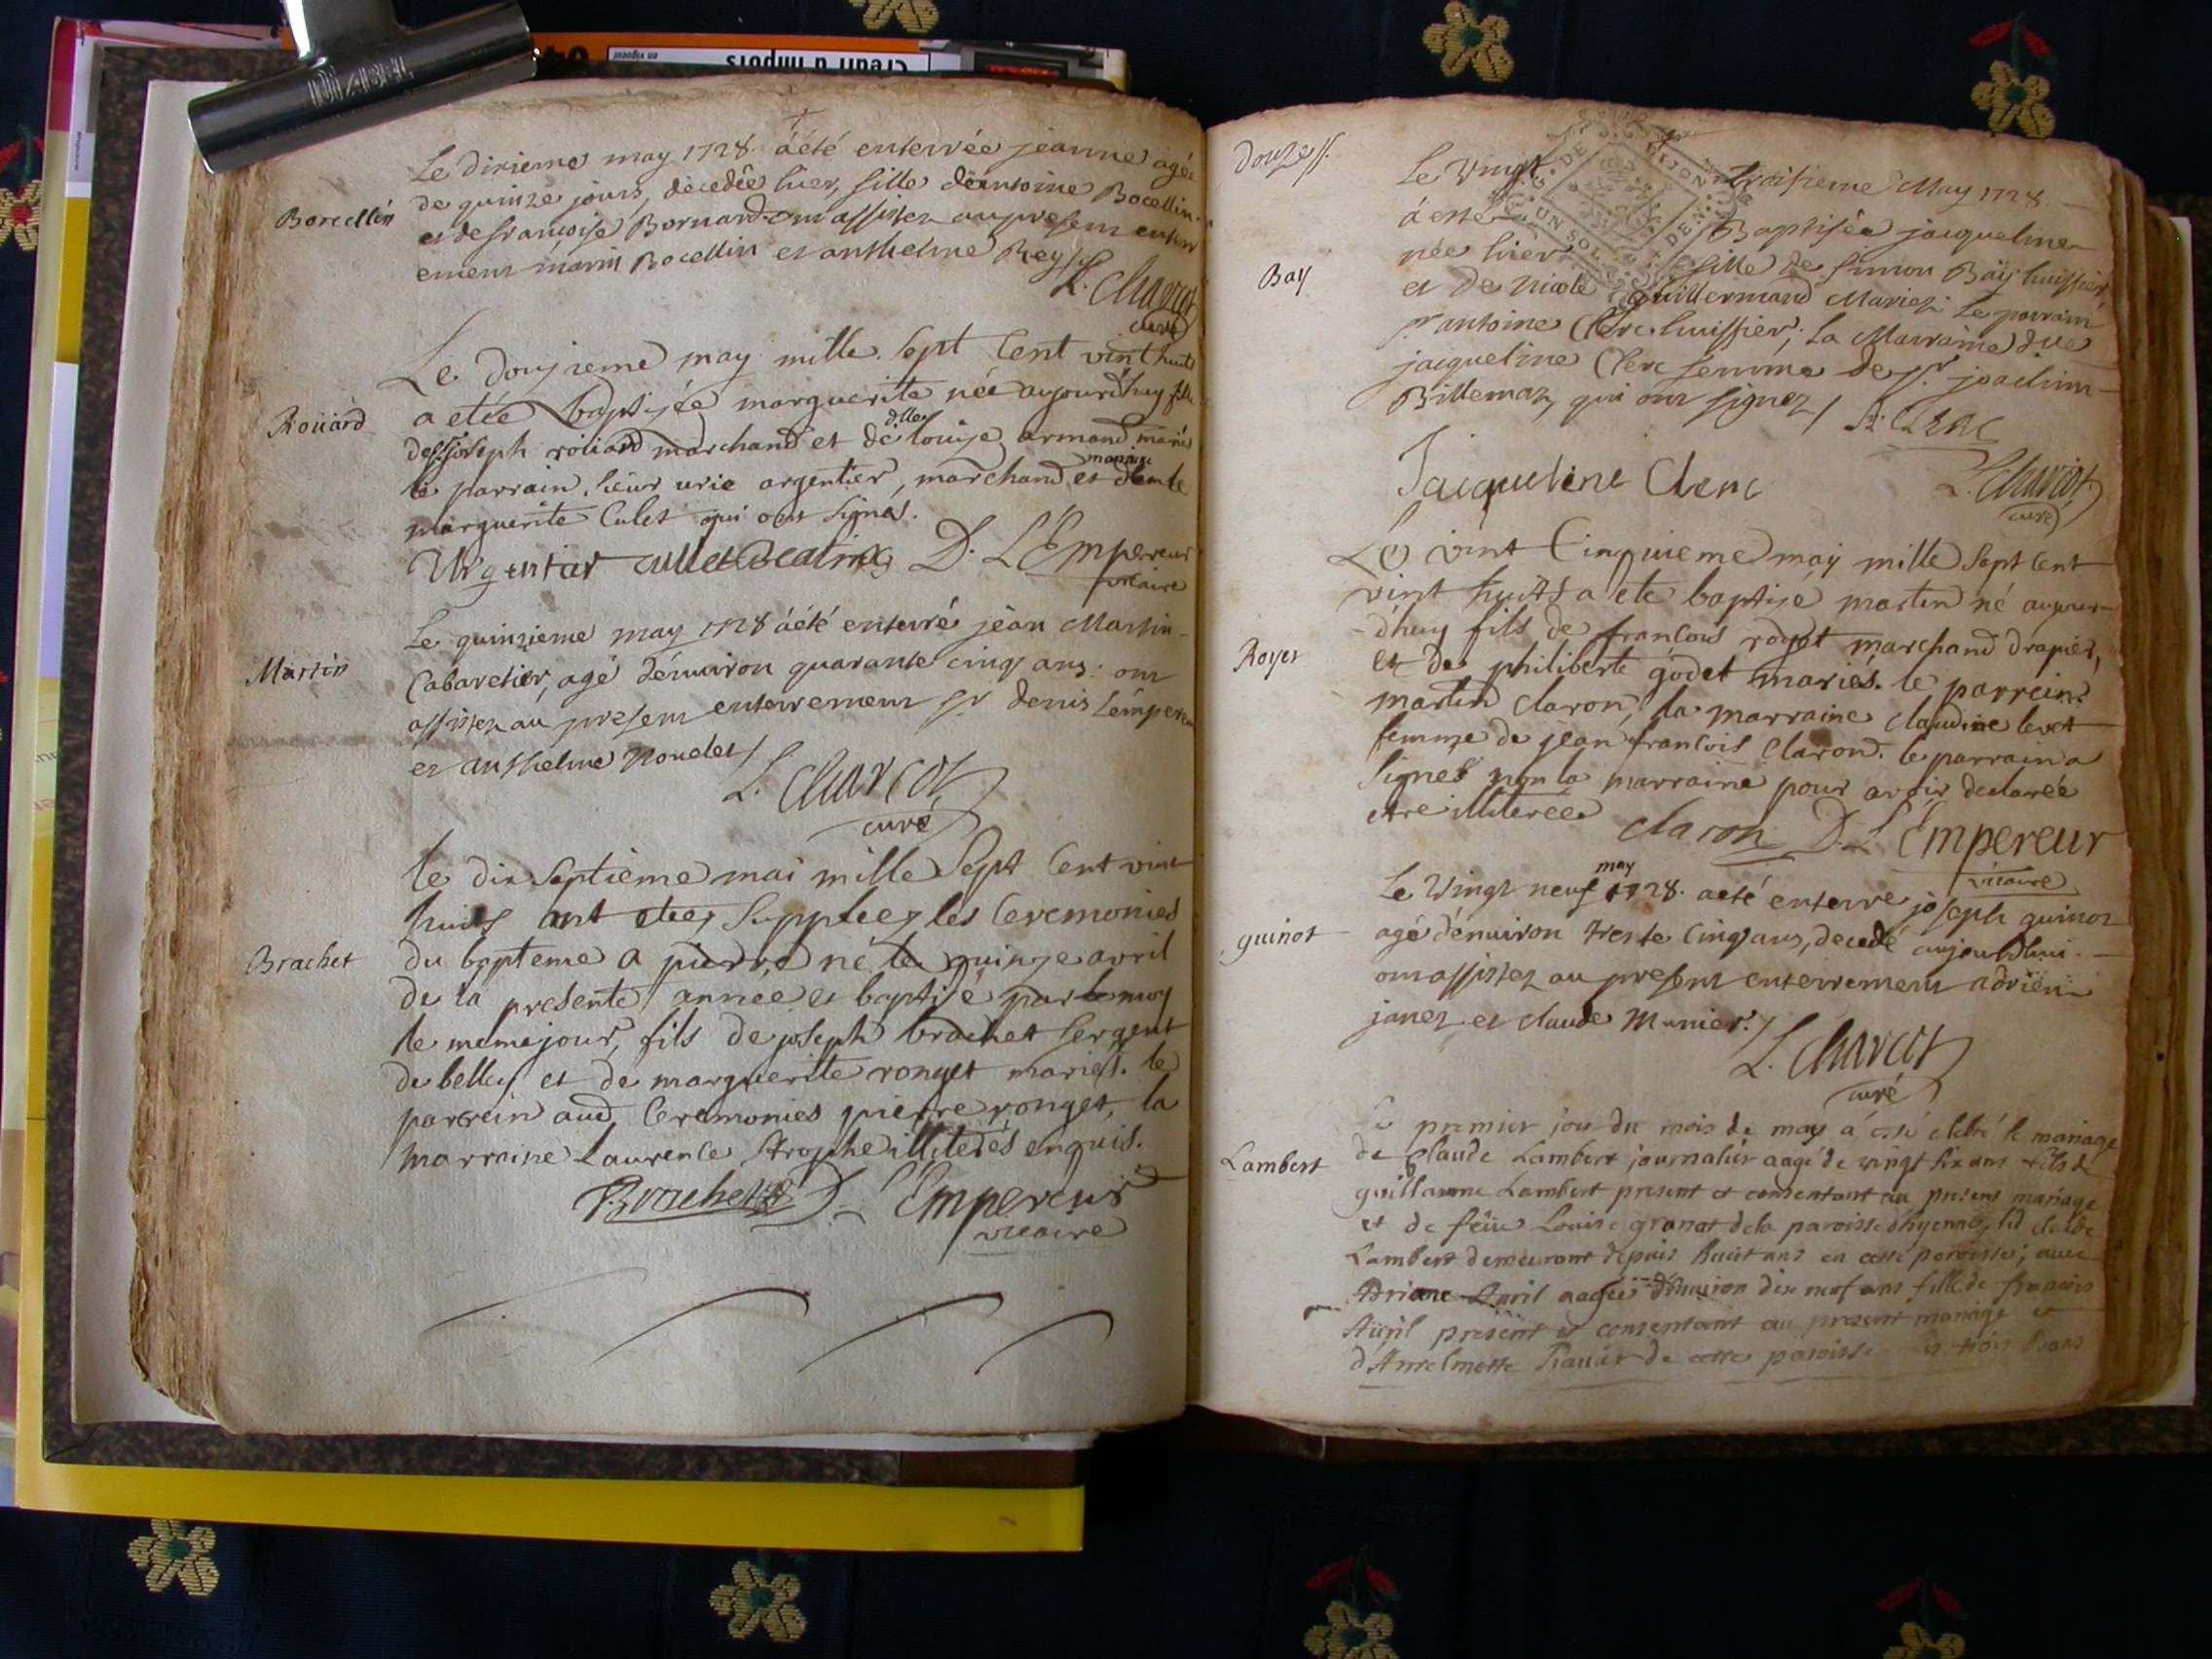 DIABEL
Crédit d'impôts
en vigueur
Le dixieme may 1728. a été enterrée jeanne agée
de quinze jours, decedée hier, fille d'antoine Bocellin
et de françoise Bornard. ont assistez au present enterr
Borcellin
ement marin Bocellin et anthelme Rey /.
L. Charcot
curé
Le douzieme may mille sept cent vint huit
a etée baptizée marguerite née aujourd'huy fille
Roüard
dlle
de sr joseph roüard marchand et de louise armand mariés
marraine
le parrain, sieur urie argentier, marchand et
marguerite Culet qui ont signés.
Urgentier D. L'Empereur
vicaire
Le quinzieme may 1728 a été enterré jean Martin
Martin
Cabaretier, agé d'environ quarante cinq ans: ont
assistez au present enterrement sr denis l'empereu
et anthelme
L. Charcot
curé
le dix septieme mai mille sept cent vint
huits ont etees suppleez les ceremonies
Brachet
du bapteme a pierre né le quinze avril
de la presente année et baptisé par moy
le meme jour, fils de joseph brachet sergent
de belley et de marguerite ronget mariés. le
parrein aud ceremonies pierre ronget, la
marraine Laurence Strophe illiterés enquis.
Brachet D. L'Empereur
vicaire
Douze ss.
G. DE DIJON
UN SOL DEN.
Le Vingt troisieme May 1728.
a esté Baptisée jacqueline
née hier fille de simon Baÿ huissier,
Bay
et de nicole Guillermand Mariez. Le parrain
sr antoine Clerc huissier; la Marraine dlle
jacqueline Clerc femme de sr. joachim
Billemaz, qui ont signez /. A. Clerc
Jacqueline Clerc
L. Charcot
curé
Le vint Cinquieme may mille sept cent
vint huits a ete baptisé martin né aujour-
d'huy fils de francois royet marchand drapier,
Royet
et de philiberte godet mariés. le parrein
martin claron, la marraine claudine levet
femme de jean francois Claron. le parrain a
signé non la marraine pour avoir declarée
etre illiterée
claron D. L'Empereur
vicaire
may
Le Vingt neuf 1728. a eté enterré joseph guinot
guinot
agé d'environ trente Cinq ans, decedé aujourd'hui.
ont assistez au present enterrement adrien
janet et claude Munier. /
L. Charcot
curé
Le premier jour du mois de may a esté celebré le mariage
Lambert
de Claude Lambert journalier aagé de vingt six ans fils de
guillaume Lambert present et consentant au present mariage
et de feüe Louise granat de la paroisse d'hyenne, led claude
Lambert demeurant depuis huict ans en cette paroisse; avec
Adriane Avril aagée d'environ dix neuf ans fille de francois
Avril present et consentant au present mariage et
d'Anselmette de cette paroisse les trois bans